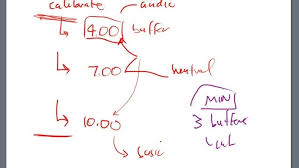 calibrate acidic
4.00 buffer
7.00 neutral
10.00
basic
MINI
3 buffers
cal